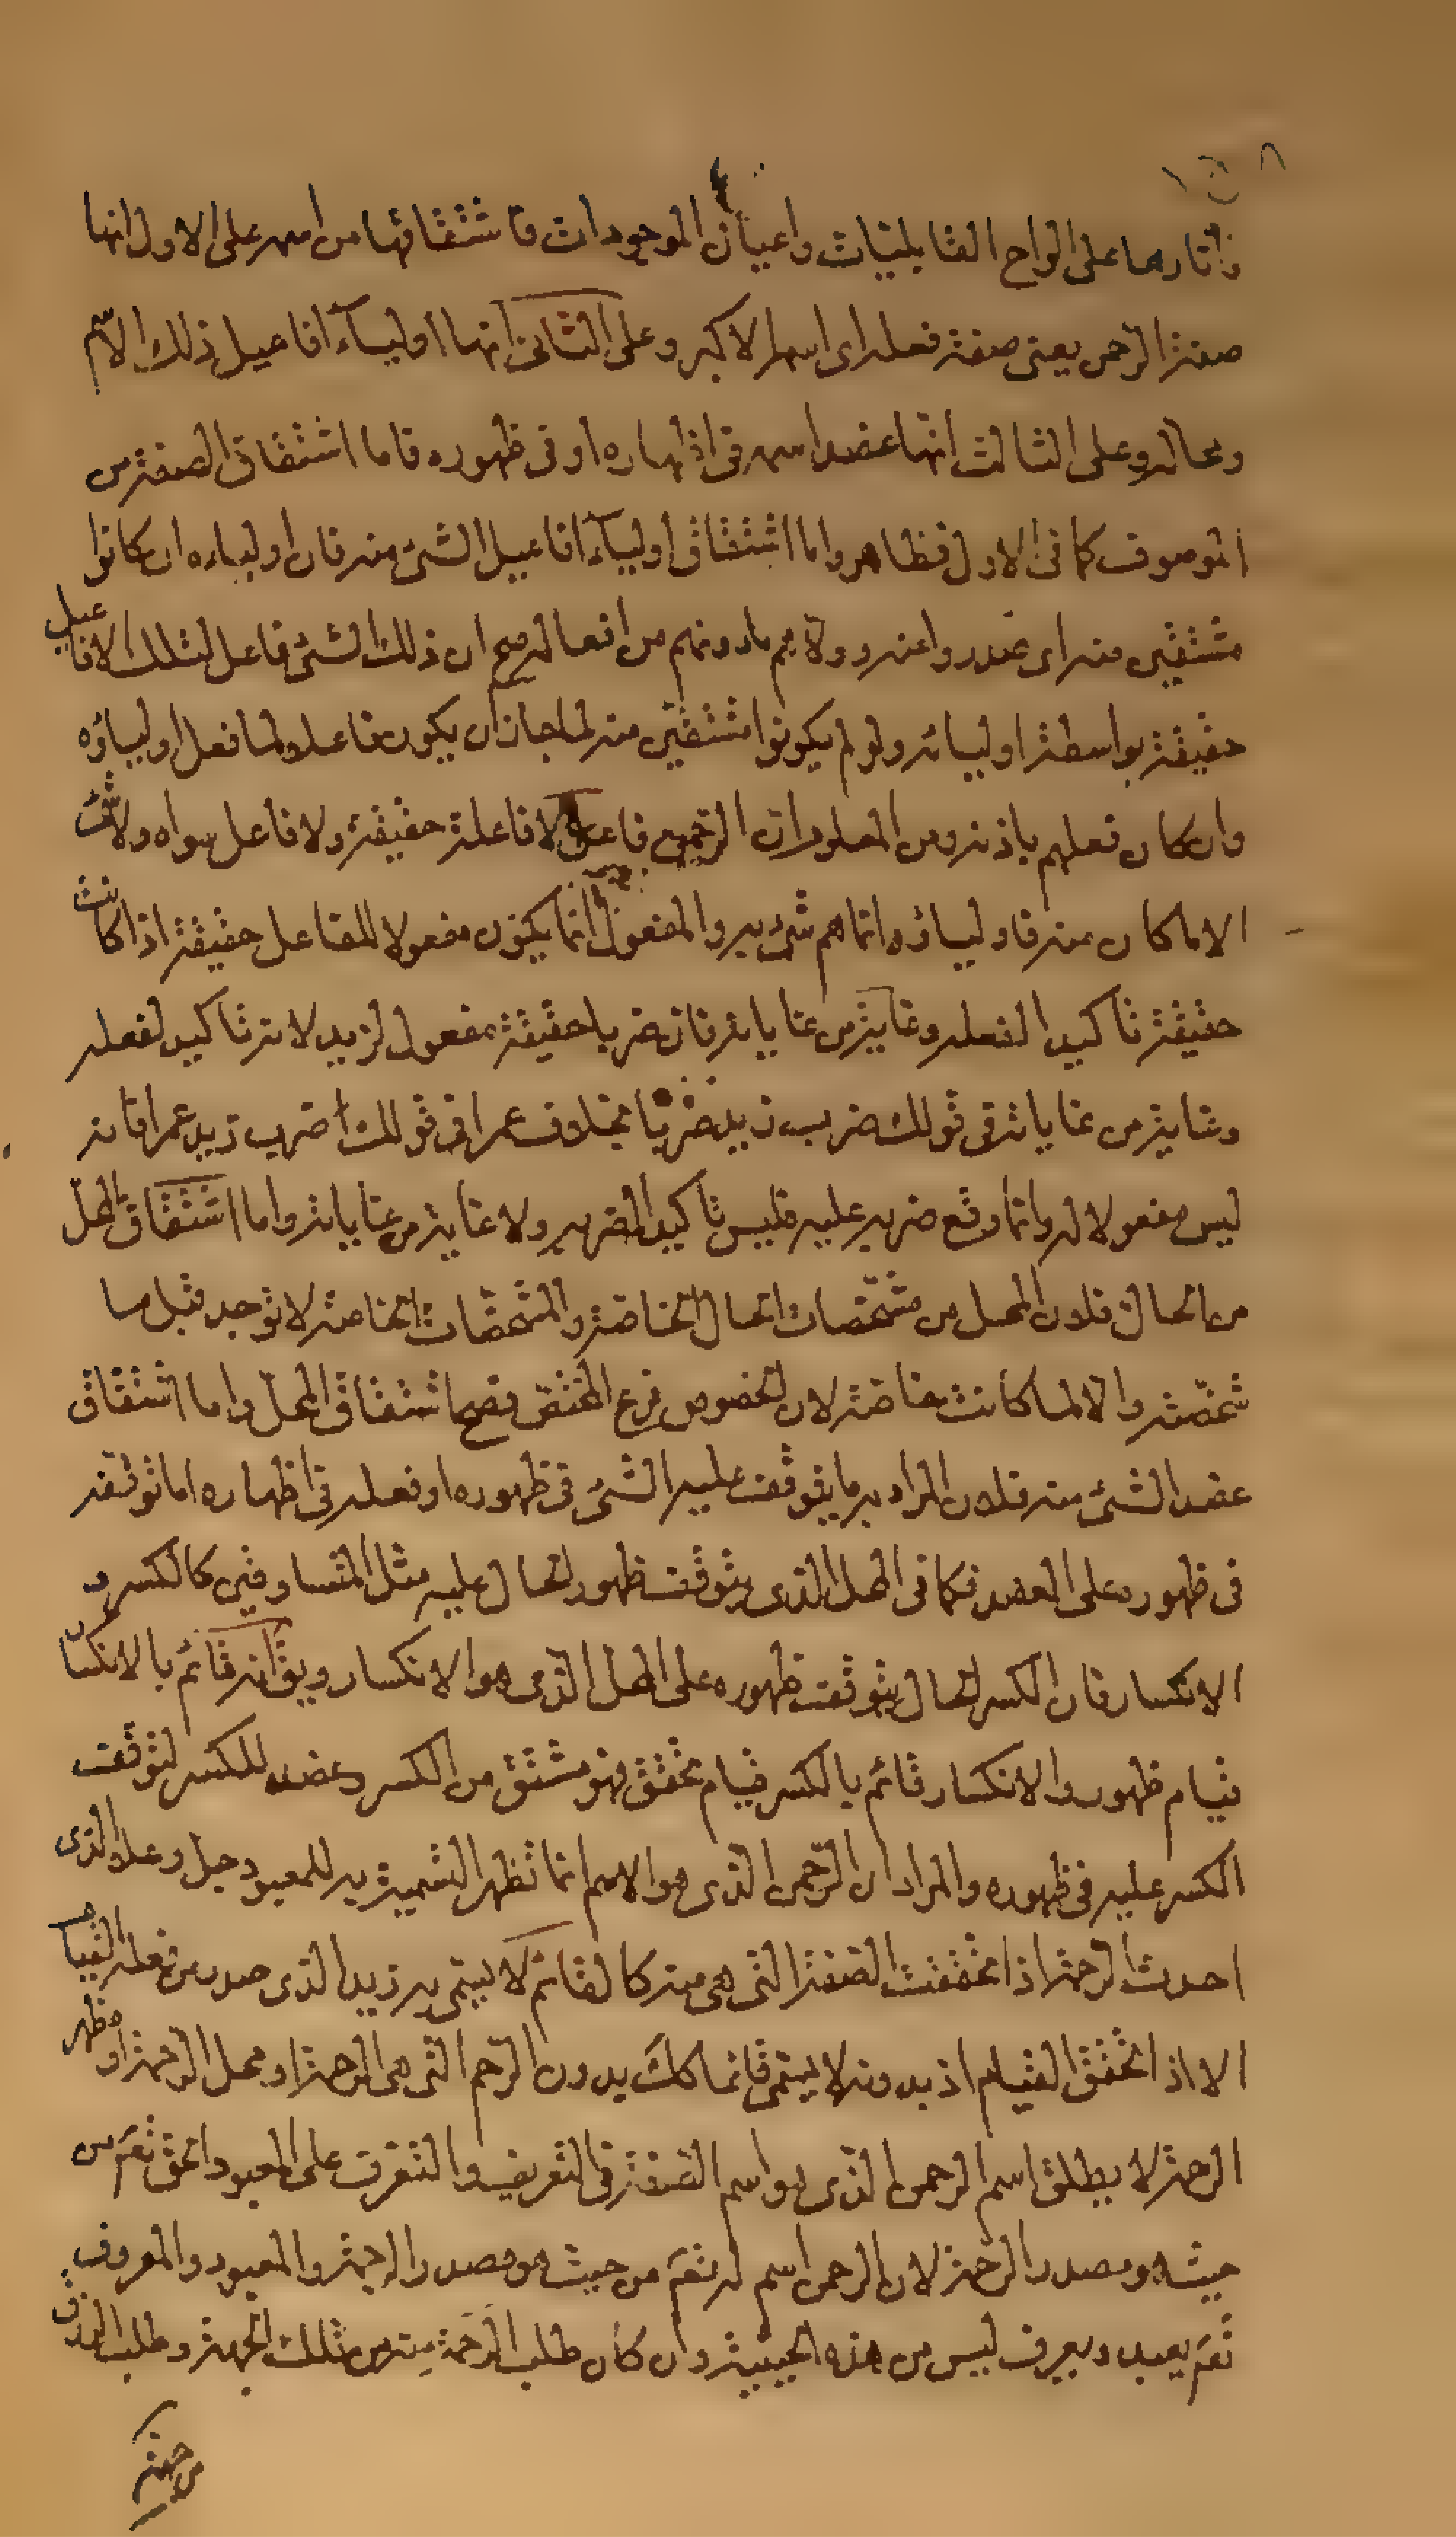 ١٥٨
واثارها على الواح القابليات واعيان الموجودات فاشتقاقها من اسمه على الاول انها
صفة الرحمن يعنى صفة فعله اى اسمه الاكبر وعلى الثانى انها اولياء افاعيل ذلك الاسم
ومحاله وعلى الثالث انها عضد اسمه فى اظهاره او فى ظهوره فاما اشتقاق الصفة من
الموصوف كما فى الاول فظاهر واما اشتقاق اولياء افاعيل الشئ منه فان اولياءه ان كانوا
مشتقين منه اى عنه رووا عنه وولاهم ما دونهم من افعاله صح ان ذلك الشئ فاعل لتلك الافاعيل
حقيقة بواسطة اوليائه ولو لم يكونوا مشتقين منه لما جاز ان يكون فاعلا ولما فعل اولياؤه
وان كان فعلهم باذنه ومن المعلوم ان الرحمن فاعل لا فاعلة حقيقة ولا فاعل سواه ولا شئ
الا ما كان منه فاولياؤه انما هم شئ به والمفعول انما يكون مفعولا للفاعل حقيقة اذا كانت
حقيقة تاكيدا لفعله وغاية من غاياته فان ضربا حقيقة مفعول لزيد لانه تاكيد لفعله
وغاية من غاياته فى قولك ضرب زيد ضربا بخلاف عمرا فى قولك ضرب زيد عمرا فانه
ليس مفعولا له وانما وقع ضربه عليه فليس تاكيدا لضربه ولا غاية من غاياته واما اشتقاق المحل
من الحال فلان المحل من مشخصات الحال الخاصة والمشخصات الخاصة لا توجد قبل ما
شخصته والا لما كانت خاصة لان الخصوص فرع المختص فصح اشتقاق المحل واما اشتقاق
عضد الشئ منه فلان المراد به ما يتوقف عليه الشئ فى ظهوره او فعله فى اظهاره اما توقفه
فى ظهوره على العضد فكما فى المحل الذى يتوقف ظهور الحال عليه مثل المتساوقين كالكسر و
الانكسار فان الكسر الحال يتوقف ظهوره على المحل الذى هو الانكسار ويق انه قائم بالانكسا
قيام ظهور والانكسار قائم بالكسر قيام تحقق فهو مشتق من الكسر وعضد للكسر لتوقف
الكسر عليه فى ظهوره والمراد ان الرحمن الذى هو الاسم انما تظهر التسمية به للمعبود جل وعلا الذى
احدث الرحمة اذا تحققت الصفة التى هى منه كالقائم لا يسمى به زيد الذى صدر من فعله القيام
الا اذا تحقق القيام اذ بدونه لا يسمى قائما كك بدون الرحم التى هى الرحمة او محل الرحمة او مظهر
الرحمة لا يطلق اسم الرحمن الذى هو اسم الصفة فى التعريف والتعرف على المعبود الحق تعم من
حيث هو مصدر الرحمة لان الرحمن اسم له تعم من حيث هو مصدر الرحمة والمعبود والمعروف
تعم يعبد ويعرف ليس من هذه الحيثية وان كان طلب الرحمة منه من تلك الجهة وطلب
من جهة